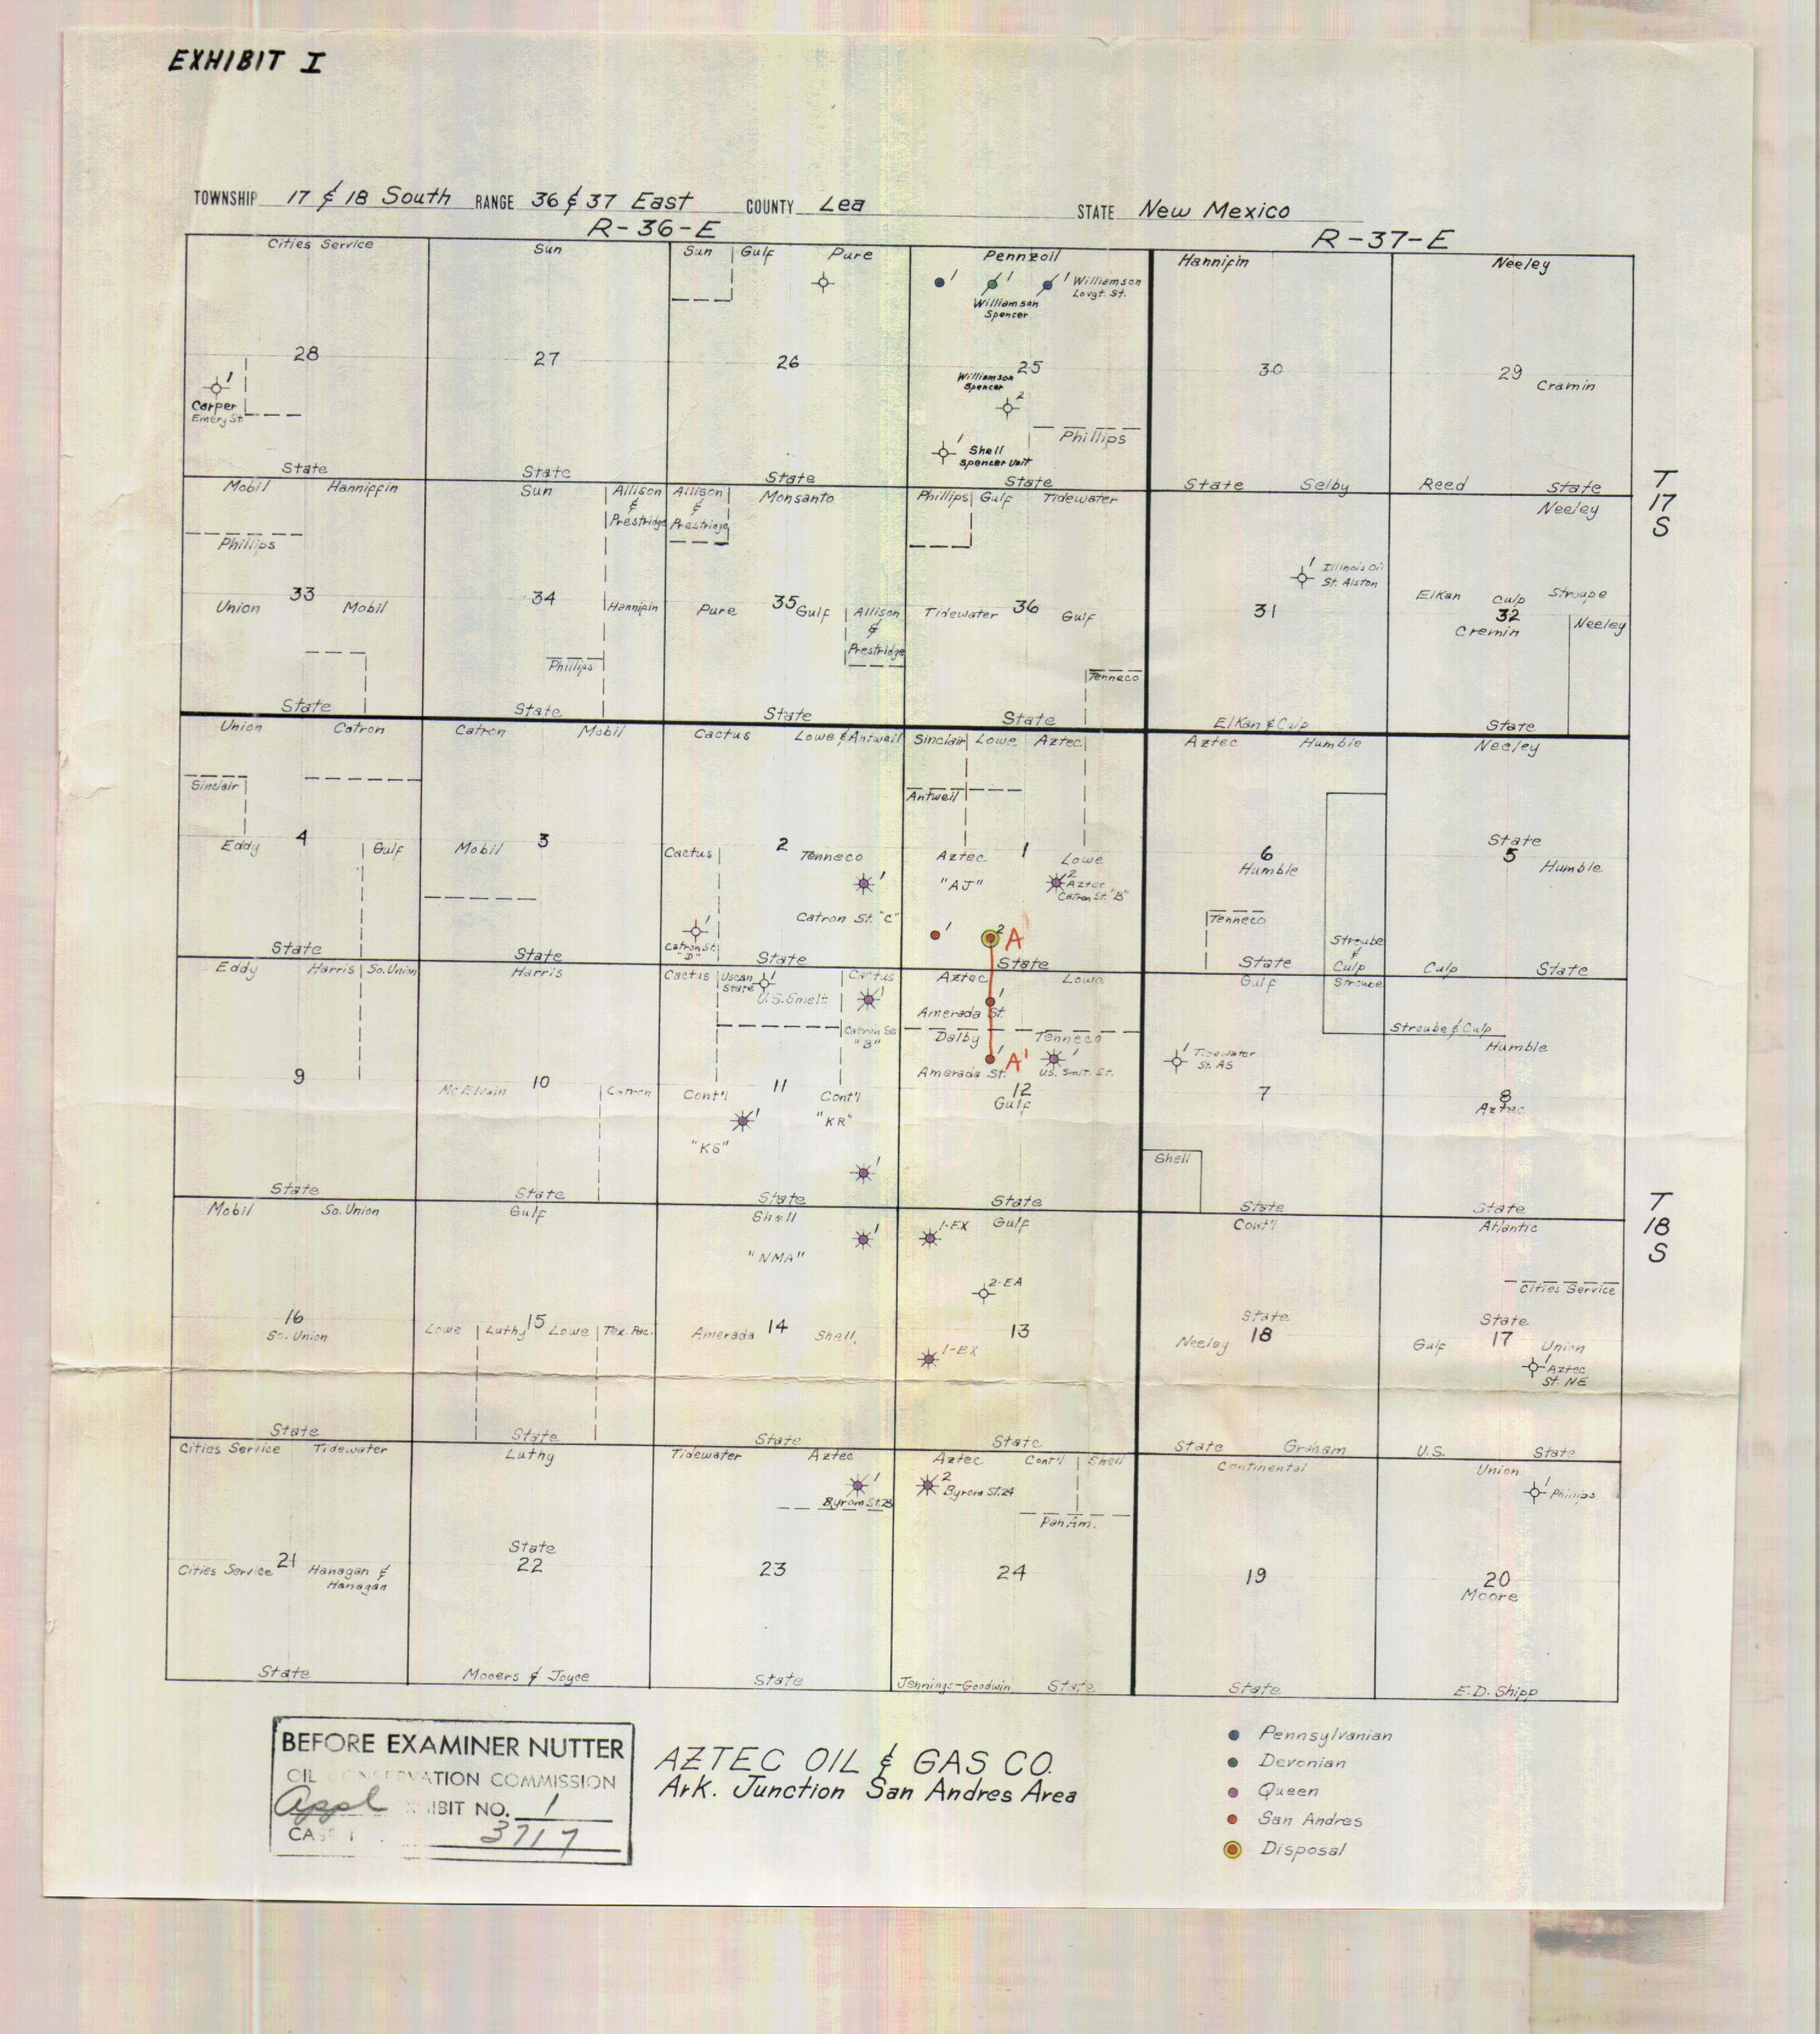 EXHIBIT I
TOWNSHIP 17 & 18 South RANGE 36 & 37 East COUNTY Lea STATE New Mexico
R-36-E
R-37-E
Cities Service
Sun
Sun Gulf Pure
Pennzoil
Hannifin
Neeley
1 1 1 Williamson
Lovgt. St.
Williamson
Spencer
28
27
26
25
30
29 Cramin
1
Carper
Emery St.
Williamson
Spencer
2
Phillips
1 Shell
Spencer Unit
State
State
State
State
State Selby
Reed State
T
17
S
Mobil Hanniffin
Sun
Allison
&
Prestridge
Allison
&
Prestridge
Monsanto
Phillips Gulf Tidewater
Neeley
Phillips
1 Illinois Oil
St. Alston
33
Union Mobil
34
Hannifin
Phillips
Pure 35 Gulf
Allison
&
Prestridge
Tidewater 36 Gulf
Tenneco
31
Elkan Culp Stroupe
32
Cremin
Neeley
State
State
State
State
Elkan & Culp
State
Union Catron
Catron Mobil
Cactus Lowe & Antweil
Sinclair Lowe Aztec
Aztec Humble
Neeley
Sinclair
Antweil
Eddy 4 Gulf
Mobil 3
Cactus 2 Tenneco
1
Catron St. "C"
1
Catron St.
"D"
Aztec 1 Lowe
"AJ"
2
Aztec
Catron St. "B"
1
2 A
6
Humble
Tenneco
Stroube
&
Culp
State
5 Humble
State
State
State
State
State
Culp State
Eddy Harris So. Union
Harris
Cactus Uscan
State 1
U.S. Smelt
Cactus
1
Catron St.
"B"
Aztec Lowe
1
Amerada St.
Dalby Tenneco
1 A' 1
Amerada St. U.S. Smlt. St.
Gulf
Stroube
Stroube & Culp
Humble
1 Tidewater
St. AS
9
McElvain 10 Catron
11
Cont'l Cont'l
1
"KR"
"KS"
1
12
Gulf
7
Shell
8
Aztec
State
State
State
State
State
State
T
18
S
Mobil So. Union
Gulf
Shell
1
"NMA"
1-EX Gulf
2-EA
Cont'l
Atlantic
Cities Service
16
So. Union
Lowe Luthy 15 Lowe Tex. Pac.
Amerada 14 Shell
13
1-EX
State
Neeley 18
State
Gulf 17 Union
1
Aztec
St. NE
State
State
State
State
State Graham
U.S. State
Cities Service Tidewater
Luthy
Tidewater Aztec
1
Byrom St. 23
Aztec Cont'l Shell
2
Byrom St. 24
Pan Am.
Continental
Union
1
Phillips
Cities Service 21 Hanagan &
Hanagan
State
22
23
24
19
20
Moore
State
Mooers & Joyce
State
Jennings-Goodwin State
State
E.D. Shipp
BEFORE EXAMINER NUTTER
OIL CONSERVATION COMMISSION
Appl EXHIBIT NO. 1
CASE 3717
AZTEC OIL & GAS CO.
Ark. Junction San Andres Area
Pennsylvanian
Devonian
Queen
San Andres
Disposal